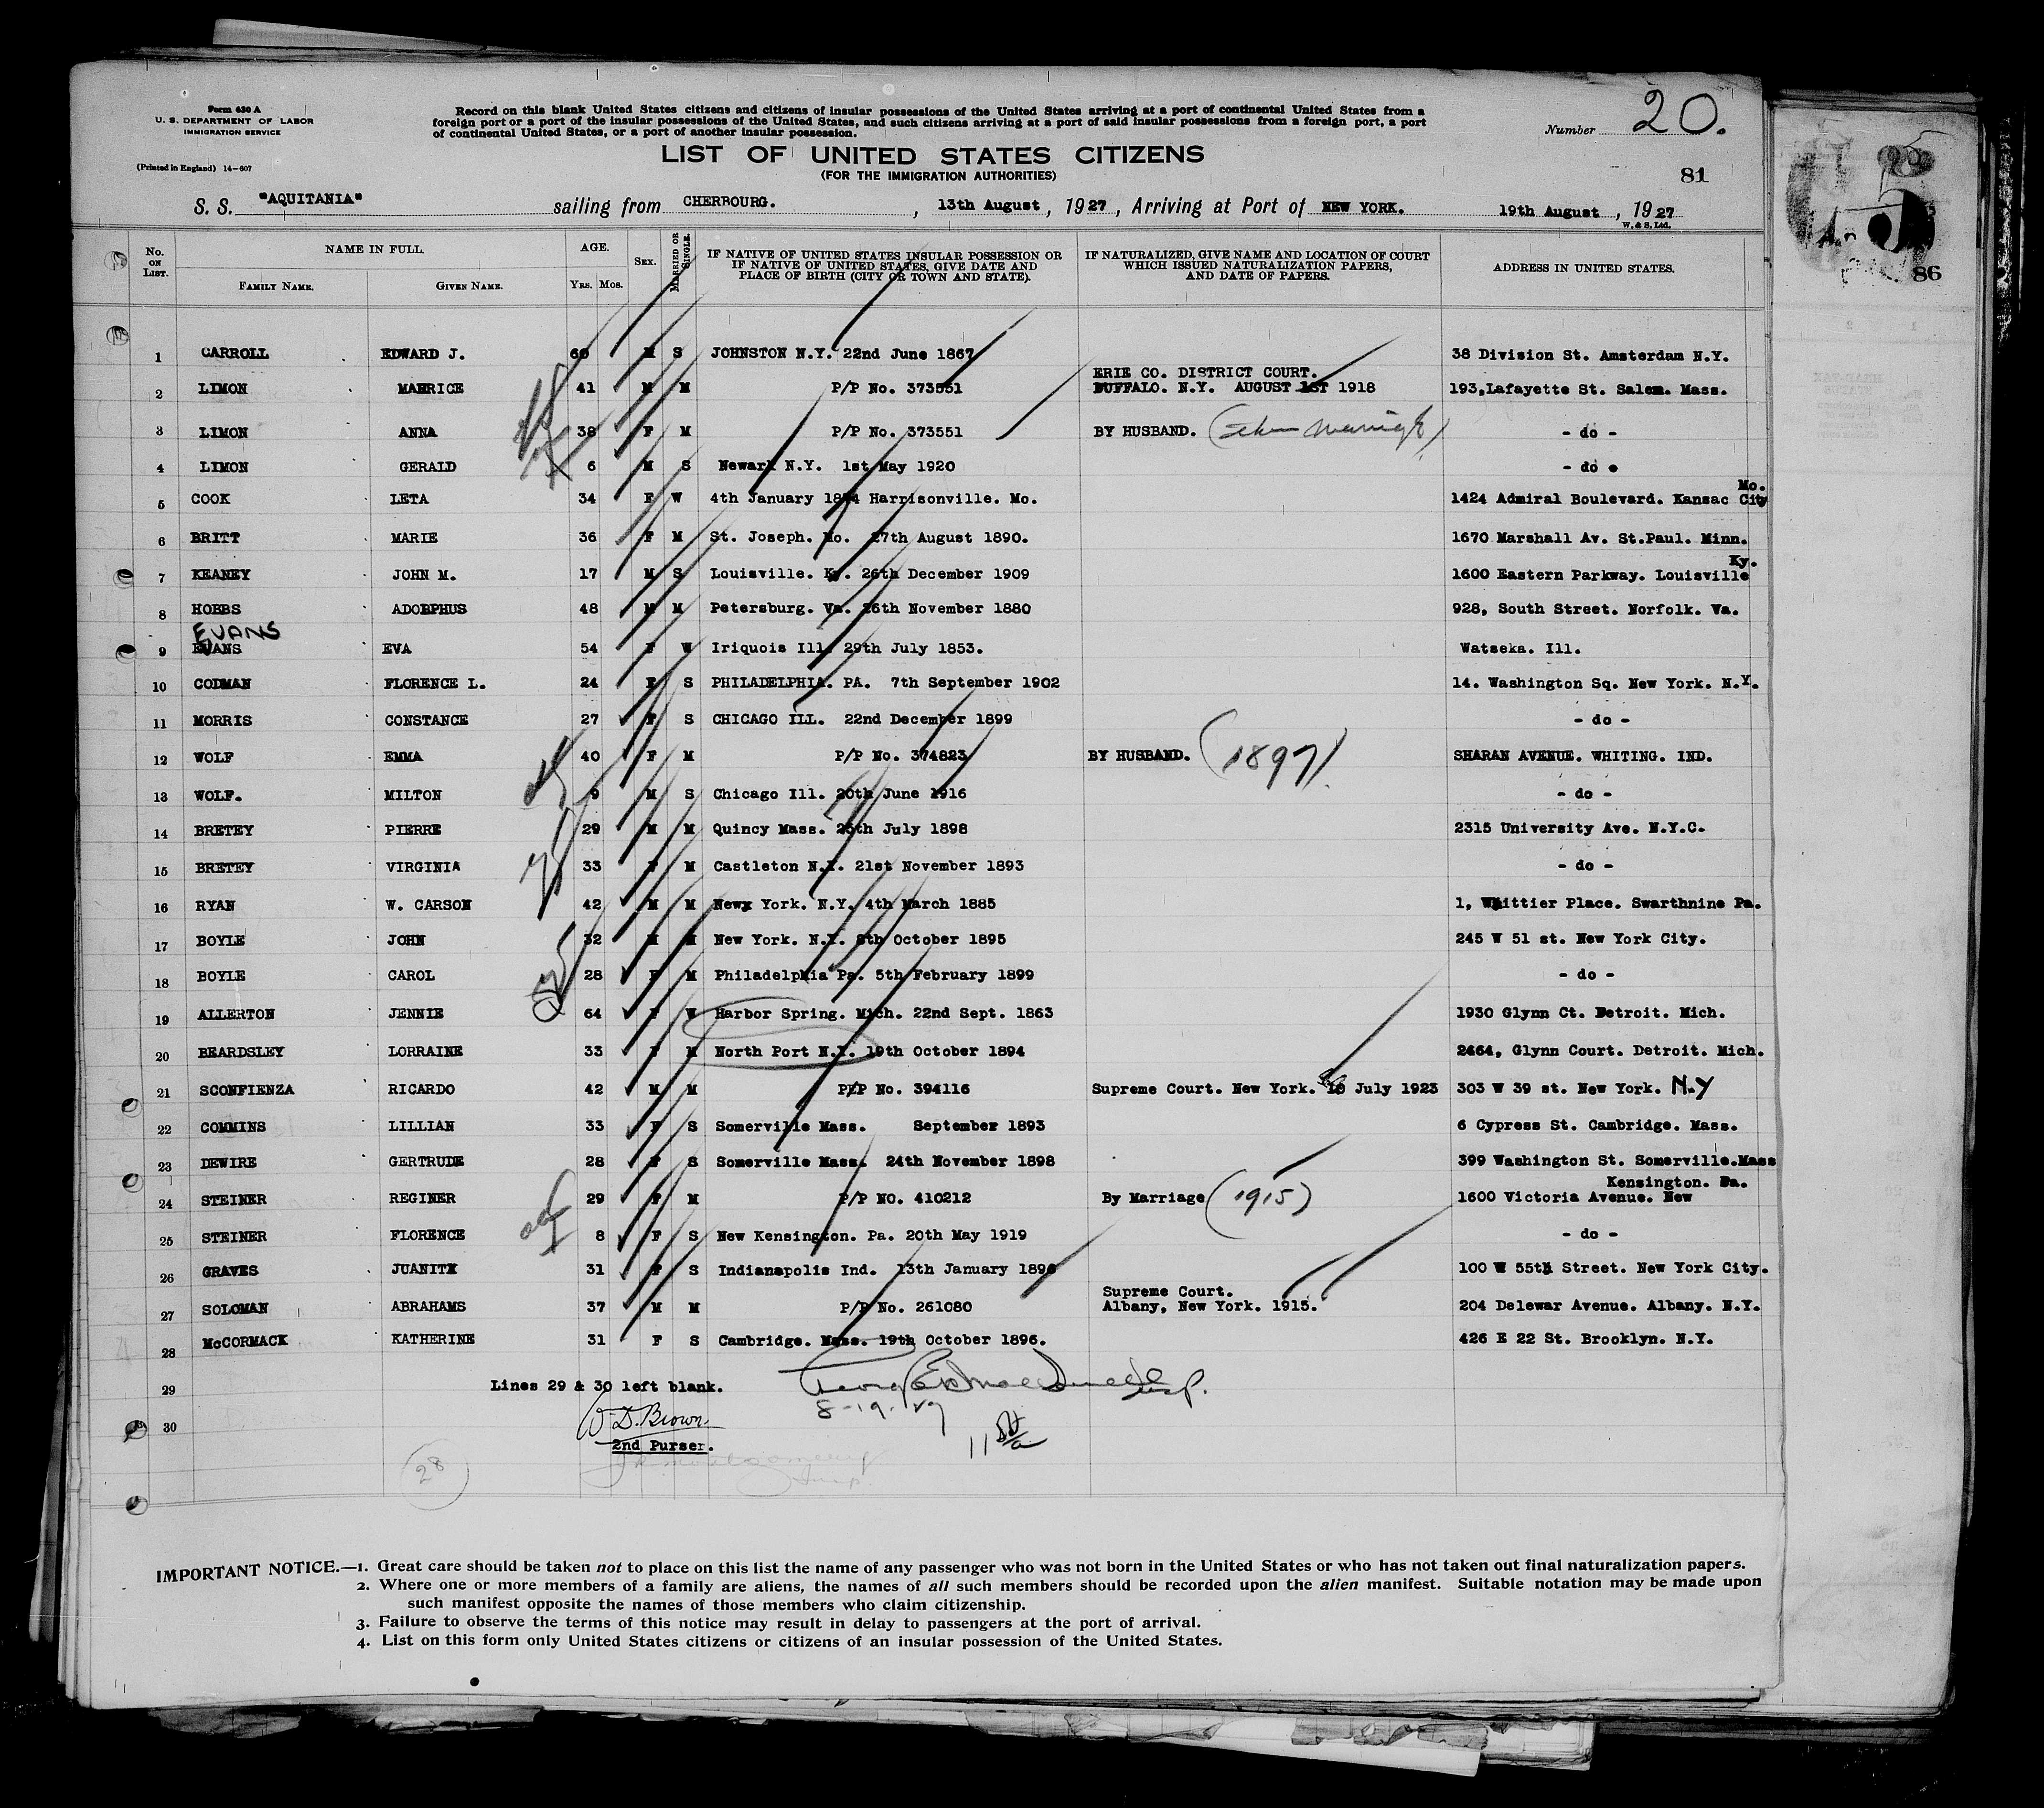 Form 630 A
U. S. DEPARTMENT OF LABOR
IMMIGRATION SERVICE
(Printed in England) 14-607
Record on this blank United States citizens and citizens of insular possessions of the United States arriving at a port of continental United States from a
foreign port or a port of the insular possessions of the United States, and such citizens arriving at a port of said insular possessions from a foreign port, a port
of continental United States, or a port of another insular possession.
Number 20.
LIST OF UNITED STATES CITIZENS
(FOR THE IMMIGRATION AUTHORITIES)
81
S. S. "AQUITANIA" sailing from CHERBOURG. , 13th August , 1927 , Arriving at Port of NEW YORK. 19th August , 1927
W. & S. Ltd.
86
No. ON LIST. NAME IN FULL. FAMILY NAME. GIVEN NAME. AGE. YRS. MOS. SEX. MARRIED OR SINGLE. IF NATIVE OF UNITED STATES INSULAR POSSESSION OR IF NATIVE OF UNITED STATES, GIVE DATE AND PLACE OF BIRTH (CITY OR TOWN AND STATE). IF NATURALIZED, GIVE NAME AND LOCATION OF COURT WHICH ISSUED NATURALIZATION PAPERS, AND DATE OF PAPERS. ADDRESS IN UNITED STATES.
1 CARROLL EDWARD J. 60 M S JOHNSTON N.Y. 22nd June 1867 38 Division St. Amsterdam N.Y.
ERIE CO. DISTRICT COURT.
2 LIMON MAURICE 41 M M P/P No. 373551 BUFFALO. N.Y. AUGUST 1ST 1918 193,Lafayette St. Salem. Mass.
3 LIMON ANNA 38 F M P/P No. 373551 BY HUSBAND. - do -
4 LIMON GERALD 6 M S Newark N.Y. 1st May 1920 - do -
Mo.
5 COOK LETA 34 F W 4th January 1894 Harrisonville. Mo. 1424 Admiral Boulevard. Kansac City
6 BRITT MARIE 36 F M St. Joseph. Mo. 27th August 1890. 1670 Marshall Av. St.Paul. Minn.
Ky.
7 KEANEY JOHN M. 17 M S Louisville. Ky. 26th December 1909 1600 Eastern Parkway. Louisville
8 HOBBS ADOLPHUS 48 M M Petersburg. Va. 26th November 1880 928, South Street. Norfolk. Va.
EVANS
9 EVANS EVA 54 F W Iriquois Ill. 29th July 1853. Watseka. Ill.
10 CODMAN FLORENCE L. 24 F S PHILADELPHIA. PA. 7th September 1902 14. Washington Sq. New York. N.Y.
11 MORRIS CONSTANCE 27 F S CHICAGO ILL. 22nd December 1899 - do -
12 WOLF EMMA 40 F M P/P No. 374823 BY HUSBAND. (1897) SHARAN AVENUE. WHITING. IND.
13 WOLF. MILTON 9 M S Chicago Ill. 20th June 1916 - do -
14 BRETEY PIERRE 29 M M Quincy Mass. 25th July 1898 2315 University Ave. N.Y.C.
15 BRETEY VIRGINIA 33 F M Castleton N.Y. 21st November 1893 - do -
16 RYAN W. CARSON 42 M M New York. N.Y. 4th March 1885 1, Whittier Place. Swarthnine Pa.
17 BOYLE JOHN 32 M M New York. N.Y. 8th October 1895 245 W 51 st. New York City.
18 BOYLE CAROL 28 F M Philadelphia Pa. 5th February 1899 - do -
19 ALLERTON JENNIE 64 F W Harbor Spring. Mich. 22nd Sept. 1863 1930 Glynn Ct. Detroit. Mich.
20 BEARDSLEY LORRAINE 33 F M North Port N.Y. 19th October 1894 2464, Glynn Court. Detroit. Mich.
21 SCONFIENZA RICARDO 42 M M P/P No. 394116 Supreme Court. New York. July 1923 303 W 39 st. New York. N.Y
22 COMMINS LILLIAN 33 F S Somerville Mass. September 1893 6 Cypress St. Cambridge. Mass.
23 DEWIRE GERTRUDE 28 F S Somerville Mass. 24th November 1898 399 Washington St. Somerville.Mass
Kensington. Pa.
24 STEINER REGINER 29 F M P/P NO. 410212 By Marriage (1915) 1600 Victoria Avenue. New
25 STEINER FLORENCE 8 F S New Kensington. Pa. 20th May 1919 - do -
26 GRAVES JUANITX 31 F S Indianapolis Ind. 13th January 1896 100 W 55th Street. New York City.
Supreme Court.
27 SOLOMAN ABRAHAMS 37 M M P/P No. 261080 Albany, New York. 1915. 204 Delewar Avenue. Albany. N.Y.
28 McCORMACK KATHERINE 31 F S Cambridge. Mass. 19th October 1896. 426 E 22 St. Brooklyn. N.Y.
29 Lines 29 & 30 left blank. Insp.
8-19-27
30 W.D. Brown
2nd Purser.
28
IMPORTANT NOTICE.—1. Great care should be taken not to place on this list the name of any passenger who was not born in the United States or who has not taken out final naturalization papers.
2. Where one or more members of a family are aliens, the names of all such members should be recorded upon the alien manifest. Suitable notation may be made upon
such manifest opposite the names of those members who claim citizenship.
3. Failure to observe the terms of this notice may result in delay to passengers at the port of arrival.
4. List on this form only United States citizens or citizens of an insular possession of the United States.